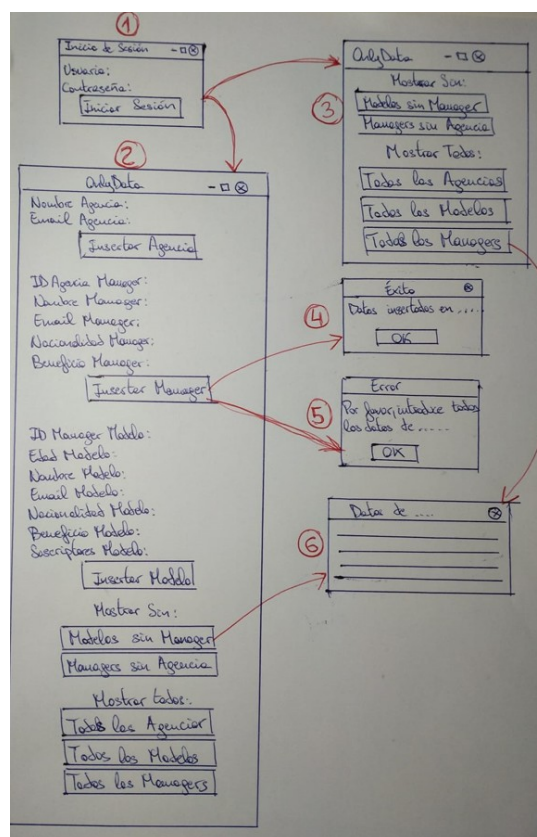 1
Inicio de Sesión
Usuario:
Contraseña:
Iniciar Sesión
2
OnlyData
Nombre Agencia:
Email Agencia:
Insertar Agencia
ID Agencia Manager:
Nombre Manager:
Email Manager:
Nacionalidad Manager:
Beneficio Manager:
Insertar Manager
ID Manager Modelo:
Edad Modelo:
Nombre Modelo:
Email Modelo:
Nacionalidad Modelo:
Beneficio Modelo:
Suscriptores Modelo:
Insertar Modelo
Mostrar Sin:
Modelos sin Manager
Managers sin Agencia
Mostrar todos:
Todas las Agencias
Todos los Modelos
Todos los Managers
3
OnlyData
Mostrar Sin:
Modelos sin Manager
Managers sin Agencia
Mostrar Todos:
Todas las Agencias
Todos los Modelos
Todos los Managers
4
Éxito
Datos insertados en .....
OK
5
Error
Por favor, introduce todos
los datos de ......
OK
6
Datos de ....